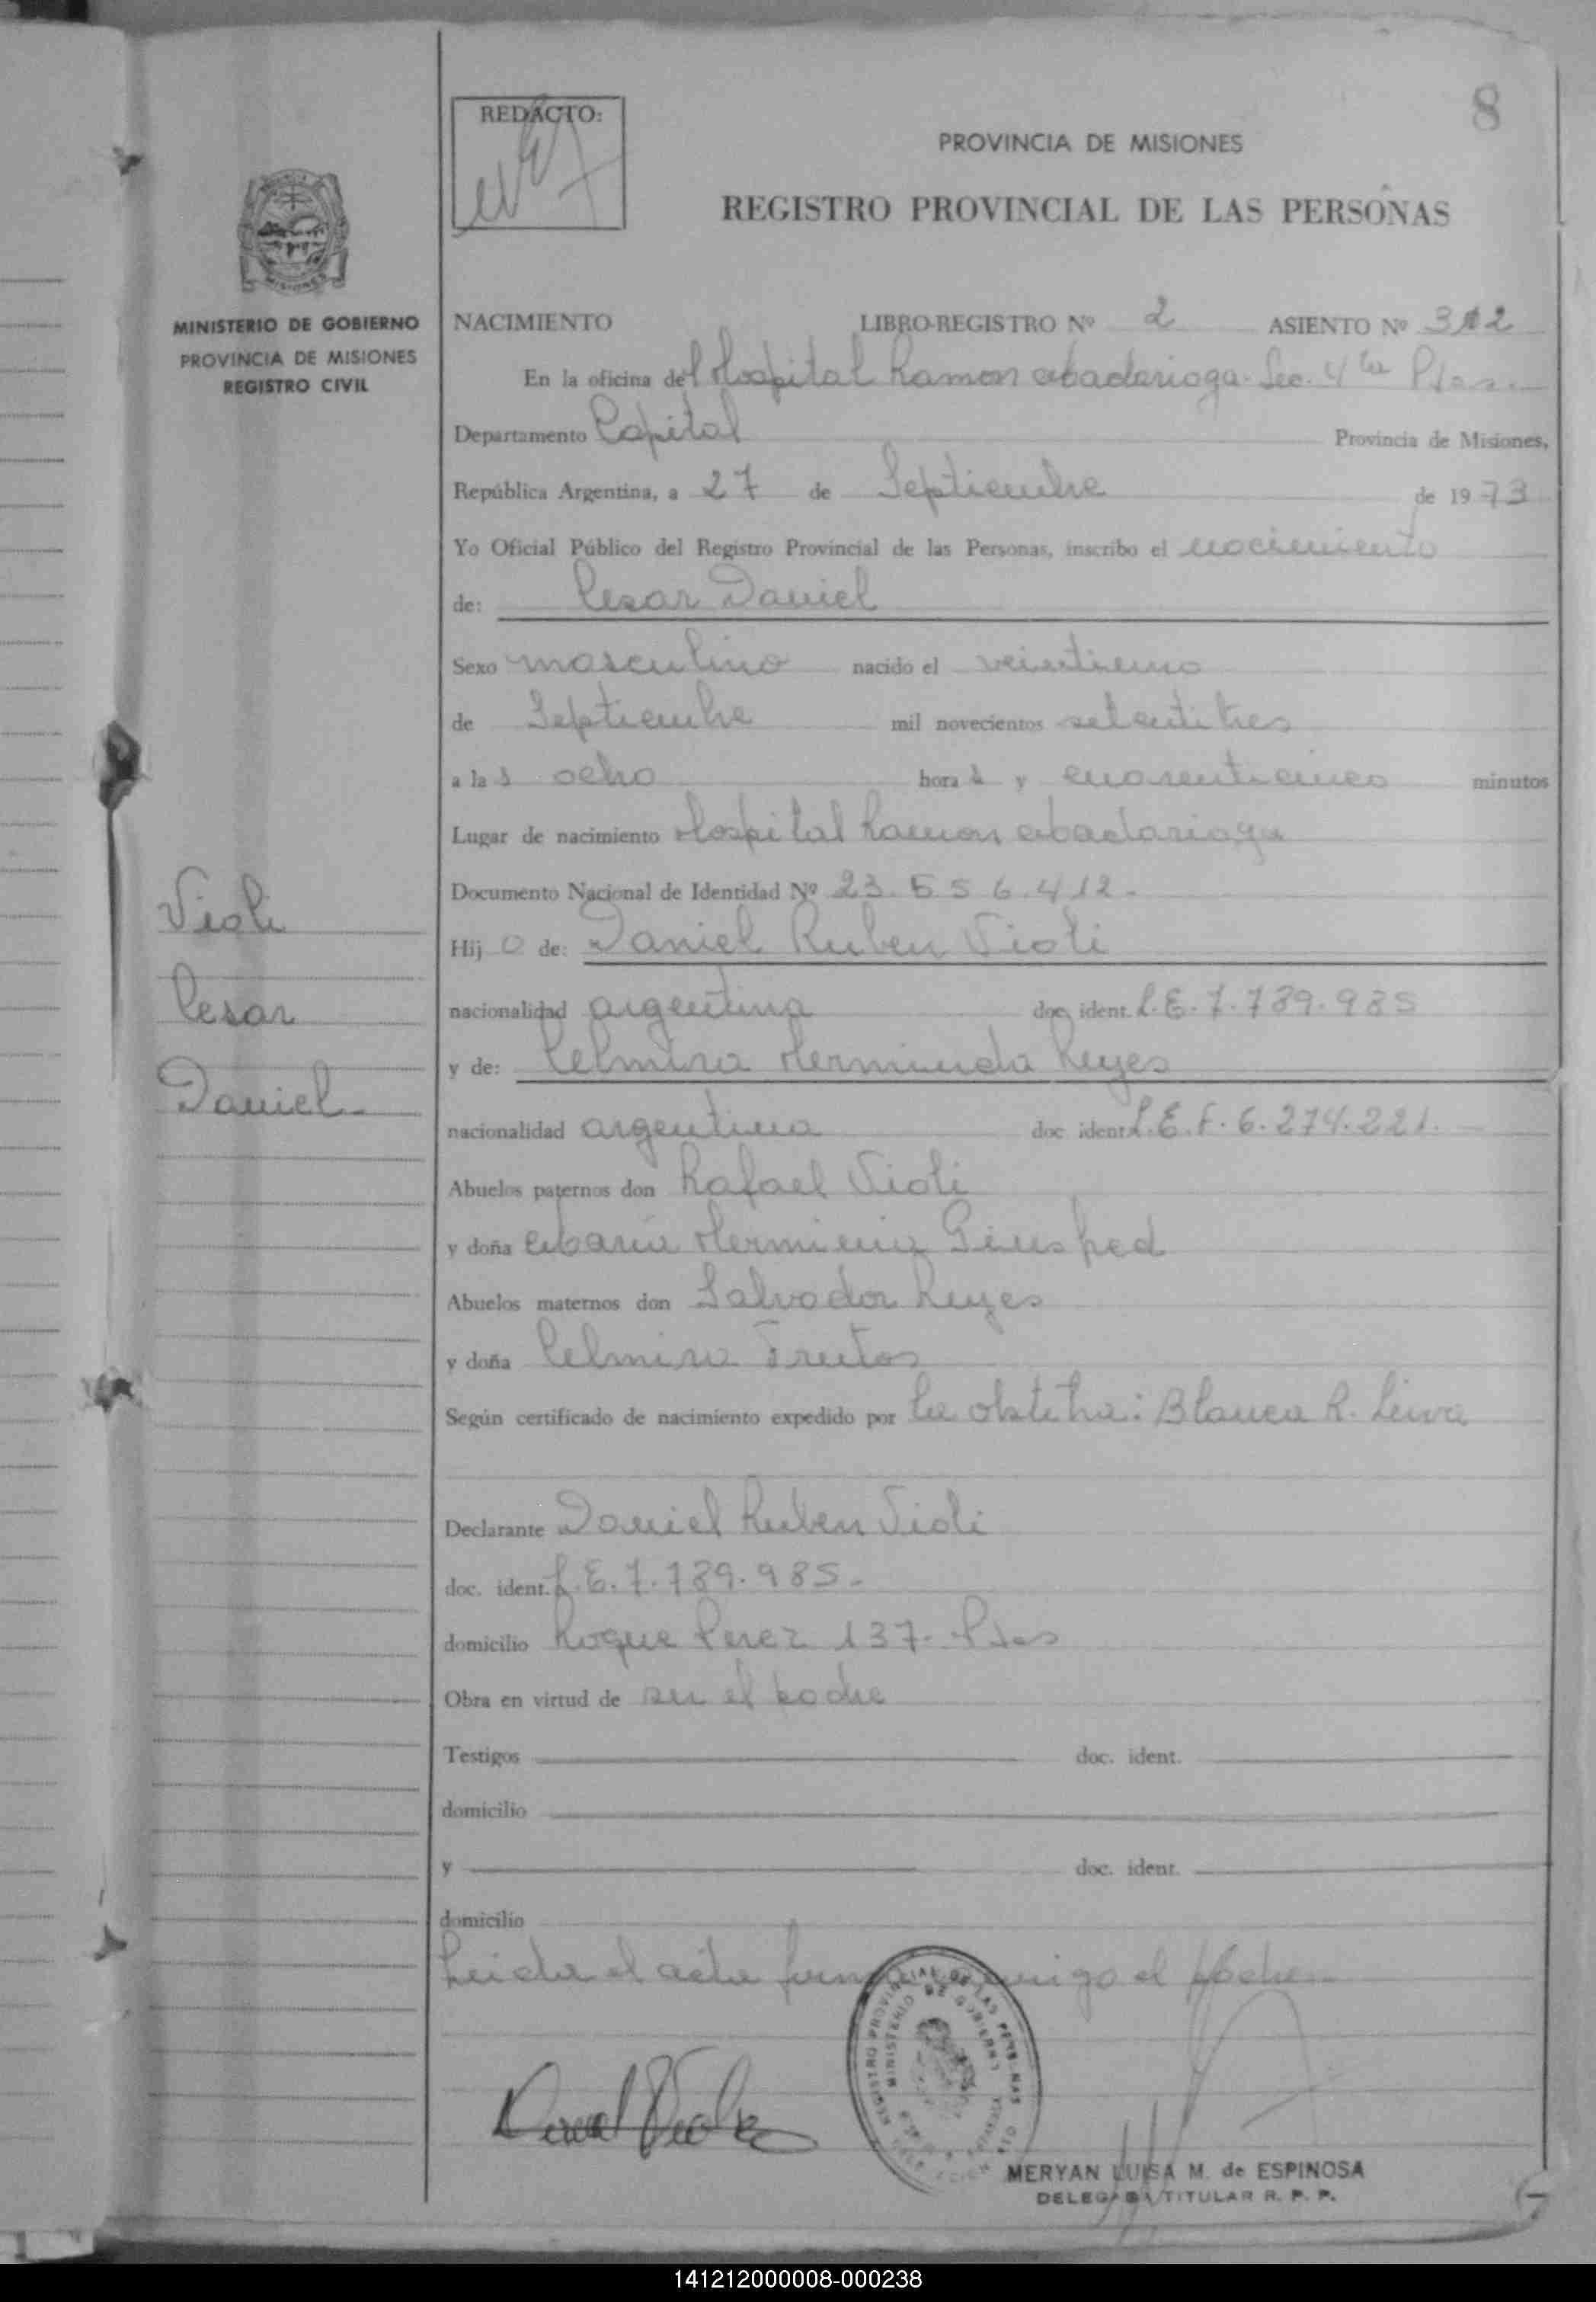 8
REDACTO:
PROVINCIA DE MISIONES
REGISTRO PROVINCIAL DE LAS PERSONAS
MISIONES
MINISTERIO DE GOBIERNO
PROVINCIA DE MISIONES
REGISTRO CIVIL
NACIMIENTO LIBRO-REGISTRO Nº 2 ASIENTO Nº 312
En la oficina del Hospital Ramon Madariaga. Sec. 4ta Pdas.
Departamento Capital Provincia de Misiones,
República Argentina, a 27 de Septiembre de 1973
Yo Oficial Público del Registro Provincial de las Personas, inscribo el nacimiento
de: Cesar Daniel
Sexo masculino nacido el veintiuno
de Septiembre mil novecientos setentitres
a las ocho horas y cuarenticinco minutos
Lugar de nacimiento Hospital Ramon Madariaga
Documento Nacional de Identidad Nº 23.556.412.-
Hijo de: Daniel Ruben Violi
nacionalidad argentina doc. ident. L.E.7.789.985
y de: Celmira Herminda Reyes
nacionalidad argentina doc ident L.E.F. 6.274.221.
Abuelos paternos don Rafael Violi
y doña Maria Herminia
Abuelos maternos don Salvador Reyes
y doña Celmira Fretos
Según certificado de nacimiento expedido por la obstetra: Blanca R. Leiva
Declarante Daniel Ruben Violi
doc. ident. L.E.7.789.985-
domicilio Roque Perez 137- Pdas
Obra en virtud de ser el padre
Testigos doc. ident.
domicilio
y doc. ident.
domicilio
Leida el acta firma conmigo el padre.-
Violi
Cesar
Daniel-
REGISTRO PROVINCIAL DE LAS PERSONAS
MINISTERIO DE GOBIERNO
MERYAN LUISA M. de ESPINOSA
DELEGADA TITULAR R. P. P.
141212000008-000238